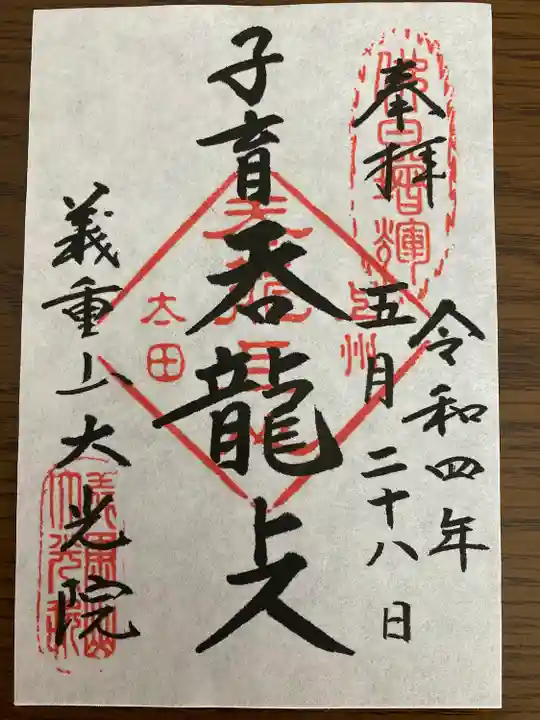 奉拝
令和四年
五月二十八日
子育呑龍上人
太田
義重山大光院